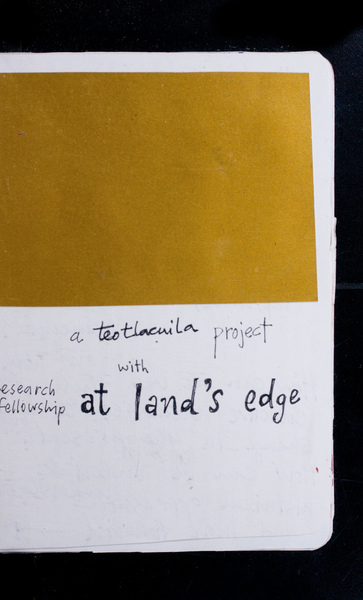 a teotlacuila project
with
esearch
fellowship at land's edge